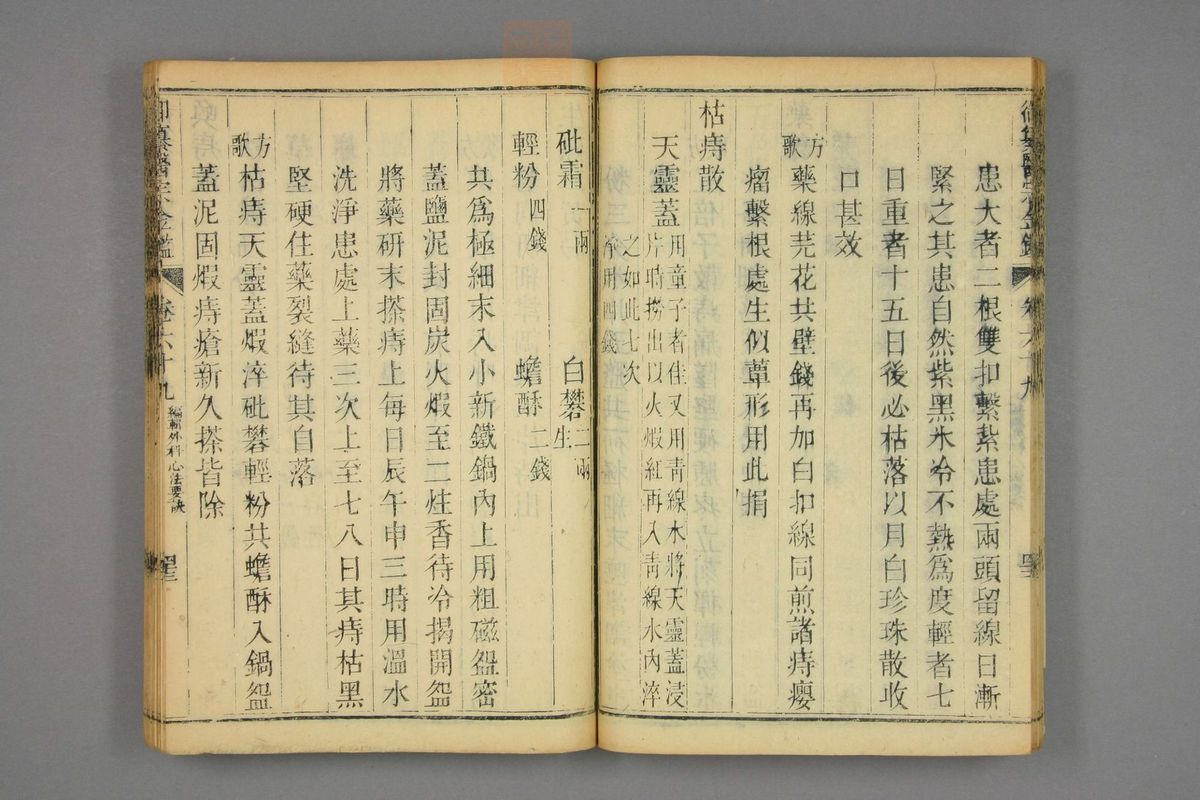 患大者二根雙扣繫紮患處兩頭留線日漸
緊之其患自然紫黑氷冷不熱爲度輕者七
日重者十五日後必枯落以月白珍珠散收
口甚效
方歌
藥線芫花共壁錢再加白扣線同煎諸痔癭
瘤繫根處生似蕈形用此捐
枯痔散
天靈蓋
用童子者佳又用靑線水將天靈蓋浸
片時撈出以火煆紅再入靑線水內淬
之如此七次
淨用四錢
砒霜一兩 白礬生二兩
輕粉四錢 蟾酥二錢
共爲極細末入小新鐵鍋內上用粗磁盌密
蓋鹽泥封固炭火煆至二炷香待冷揭開盌
將藥研末搽痔上每日辰午申三時用溫水
洗淨患處上藥三次上至七八日其痔枯黑
堅硬住藥裂縫待其自落
方歌
枯痔天靈蓋煆淬砒礬輕粉共蟾酥入鍋盌
蓋泥固煆痔瘡新久搽皆除
御纂醫宗金鑑 卷六十九 編輯外科心法要訣